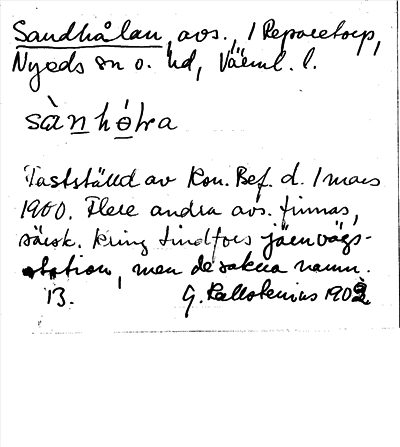 Sandhålan, avs., i Reparetorp,
Nyeds sn o. hd, Värml. l.
sàn hå̀ḷa
Fastställd av Kon. Bef. d. 1 mars
1900. Flere andra avs. finnas,
särsk. kring Lindfors järnvägs-
station, men de sakna namn.
13. G. Kallstenius 1902.